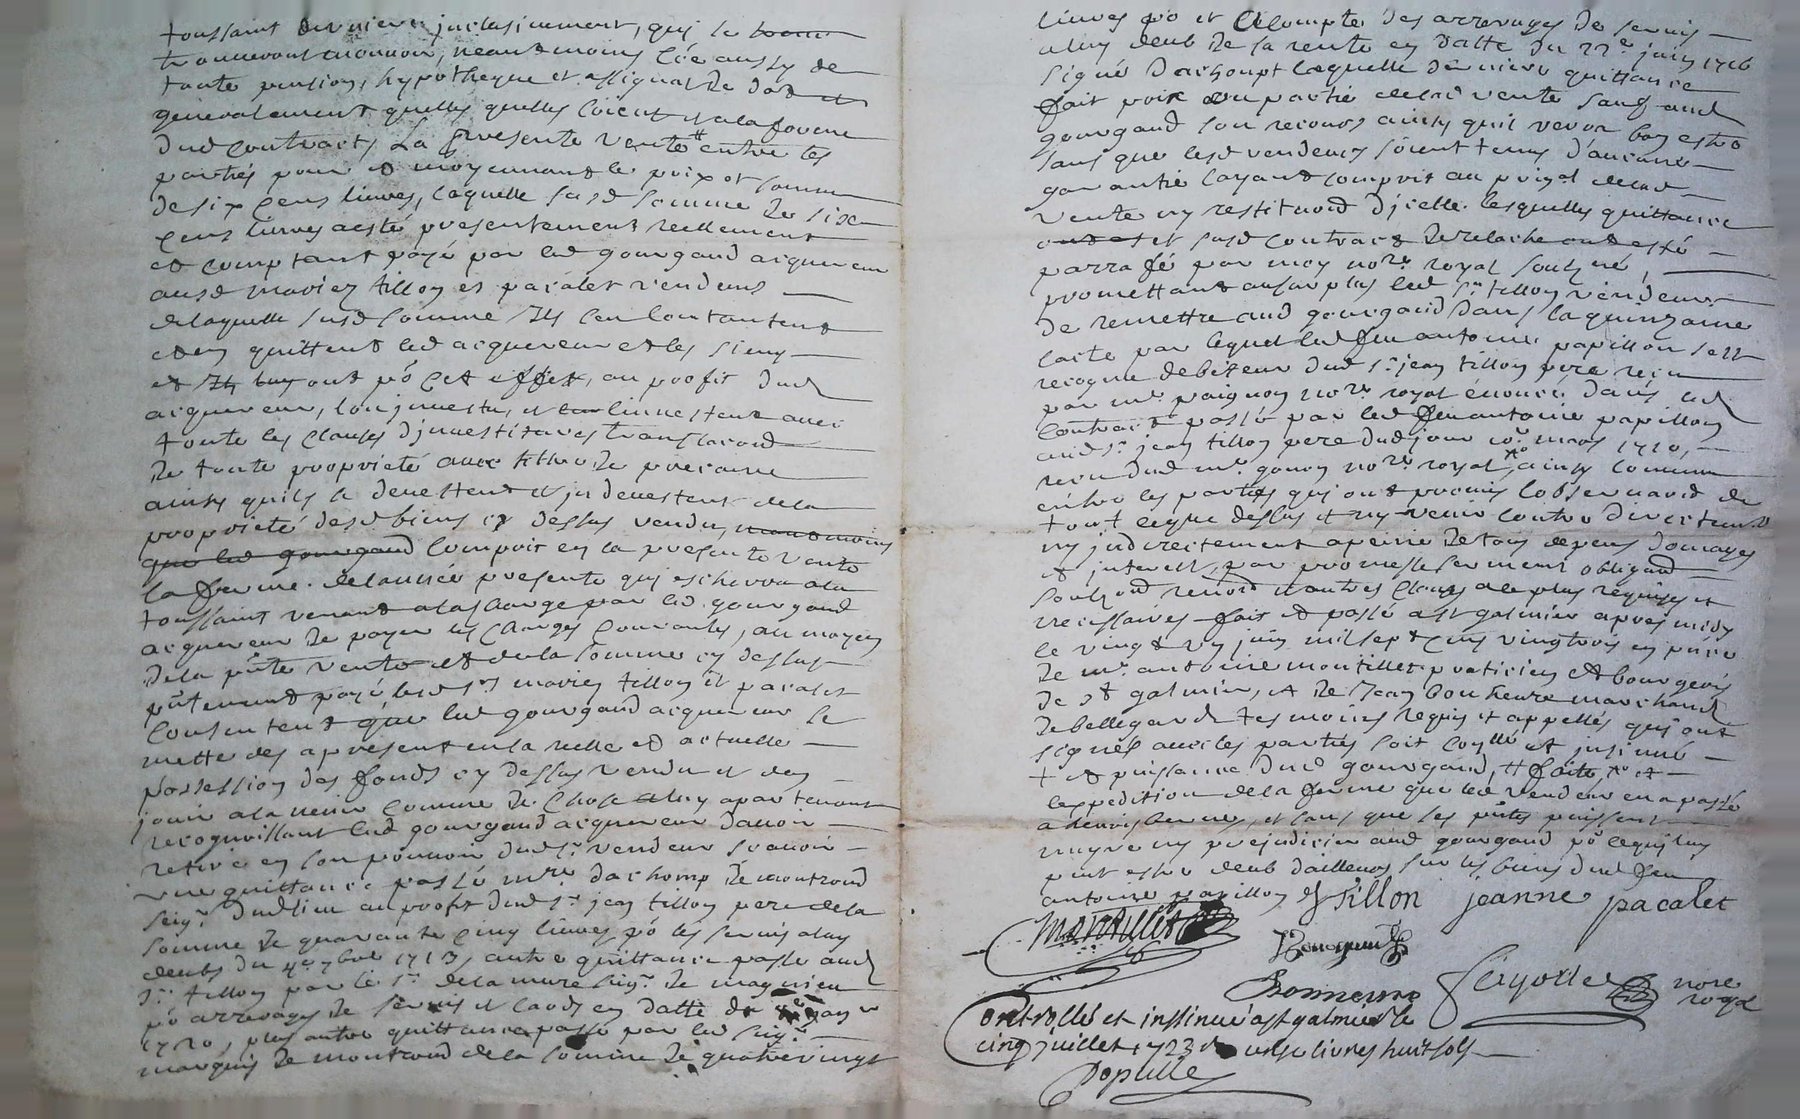 toussaint derniere jnclusivement, qui se
trouveront mouvoir, neantmoins cée aussy de
toute pension, hypotheque et assignat de dot
generalement quelles quelles soient et a la forme
dud contract, La presente vente entre les
partiés pour et moyennant le prix et somme
de six cens livres, laquelle susd somme de six
cens livres a esté presentement reellement
et comptant payé par led gourgand acquereur
ausd mariez tillon et pacalet vendeurs
de laquelle susd somme Ils sen contantent
et en quittent led acquereur et les siens
et Ils ont pō cet effet, au proffit dud
acquereur, lon jnvestu, et linvestent avec
toute les clauses djnvestitures translaond
de toute proprieté avec tiltre de precaire
ainsy quils se devestent et jn devestent de la
proprieté desd biens cy dessus vendu, neantmoins
que led gourgand compris en la presente vente
la ferme de lannée presente qui escherra a la
toussaint venant a la charge par led gourgand
acquereur de payer les charges courantes, au moyen
de la pn̄te vente et de la somme cy dessus
pn̄tement payé lesd srs mariez tillon et pacalet
consentent que led gourgand acquereur se
mette des apresent en la reelle et actuelle
possession des fonds cy dessus vendu et den
jouir a lavenir comme de chose a luy apartenant
recognoissant led gourgand acquereur davoir
retiré en son pouvoir dud sr vendeur scavoir
une quittance passé mre dachomp de montrond
seigr dudlieu au proffit dud sr jean tillon pere de la
somme de quarante cinq livres pō les servis a luy
deubs du 4e 7bre 1713, autre quittance passé aud
sr tillon par le sr de la mure seigr de magnieu
pō arrerages de servis et laods en datte du
1720, plus autre quittance passé par led seigr
marquis de montrond de la somme de quatrevingt
livres pō et acompte des arrerages de servis
a luy deub de sa rente en datte du 22e juin 1716
signé Dachoupt laquelle derniere quittance
fait prix ou partie de lad vente sauf aud
gourgand son recours ainsy quil verra bon estre
sans que lesd vendeurs soient tenus daucune
garantie layant compris au prix de lad
vente ny restituond djcelle. lesquelles quittance
et susd contract de relache ont esté
parrafé par moy nore royal soubzné,
promettant ausurplus led sr tillon vendeur
de remettre aud gourgand dans la quinzaine
lacte par lequel led feu antoine papillon sest
recognu debiteur dud sr jean tillon pere receu
par me paignon nore royal énoncé dans led
contract passé par led feu antoine papillon
aud sr jean tillon pere dud jour 10e mars 1710,
receu dud me gonon nore royal, ainsy convenu
entre les parties qui ont promis lobservaond de
tout ceque dessus et ny venir contre directement
ny jndirectement a peine de tous depens domages
et jnterest, par promesse serment obligaond
soubzond renond et autres clauses a le plus requises et
necessaires fait et passé a st galmier apres midy
le vingt un juin mil sept cens vingtrois en pn̄ce
de me antoine montillet praticien et bourgeois
de st galmier, et de jean bonheure marchand
de bellegarde tesmoins requis et appellés qui ont
signés avec les parties soit conllé et jnsinué
+ et puissance dud gourgand, # faite, et
lexpedition de la ferme que led vendeur en a passé
a benois berne, et sans que les pn̄tes puissent
nuyre ny prejudicier aud gourgand pō lequi luy
peut estre deub dailleurs sur les biens dud feu
antoine papillon
J Tillon jeanne pacalet
Montillet
Bonneure
nore
royal
Controllé et jnsinué a st galmier le
cinq juillet 1723 onse livres huit sols
Populle